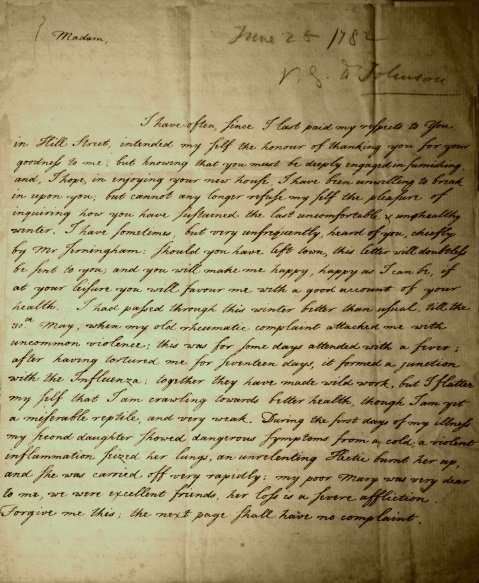 Madam,
June 25 1782
Dr Johnson
I have often, since I last paid my respects to You
in Hill Street, intended my self the honour of thanking you for your
goodness to me; but knowing that you must be deeply engaged in furnishing,
and, I hope, in enjoying your new house, I have been unwilling to break
in upon you; but cannot any longer refuse my self the pleasure of
inquiring how you have sustained the last uncomfortable & unhealthy
winter. I have sometimes, but very unfrequently, heard of you, chiefly
by Mr Jerningham: should you have left town, this letter will doubtless
be sent to you; and you will make me happy, happy as I can be, if
at your leisure you will favour me with a good account of your
health. I had passed through this winter better than usual, till the
May, when my old rheumatic complaint attacked me with
uncommon violence; this was for some days attended with a fever;
after having tortured me for seventeen days, it formed a junction
with the Influenza; together they have made wild work, but I flatter
my self that I am crawling towards better health, though I am yet
a miserable reptile, and very weak. During the first days of my illness
my second daughter showed dangerous symptoms from a cold; a violent
inflammation seized her lungs, an unrelenting Hectic burnt her up,
and she was carried off very rapidly; my poor Mary was very dear
to me, we were excellent friends, her loss is a severe affliction.
Forgive me this; the next page shall have no complaint.